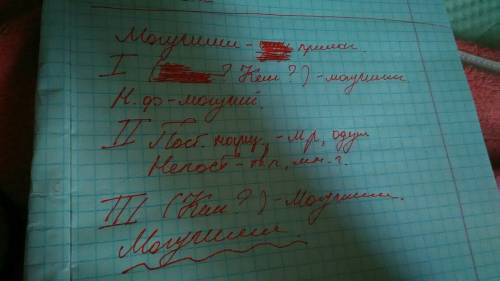 Могучими - прилаг.
I ( ? Кем?) - могучими
Н.ф - могучий.
II Пост. нариц. - м.р, одуш
Непост - т.п., мн.ч.
III (Кем?) - Могучими.
Могучими.